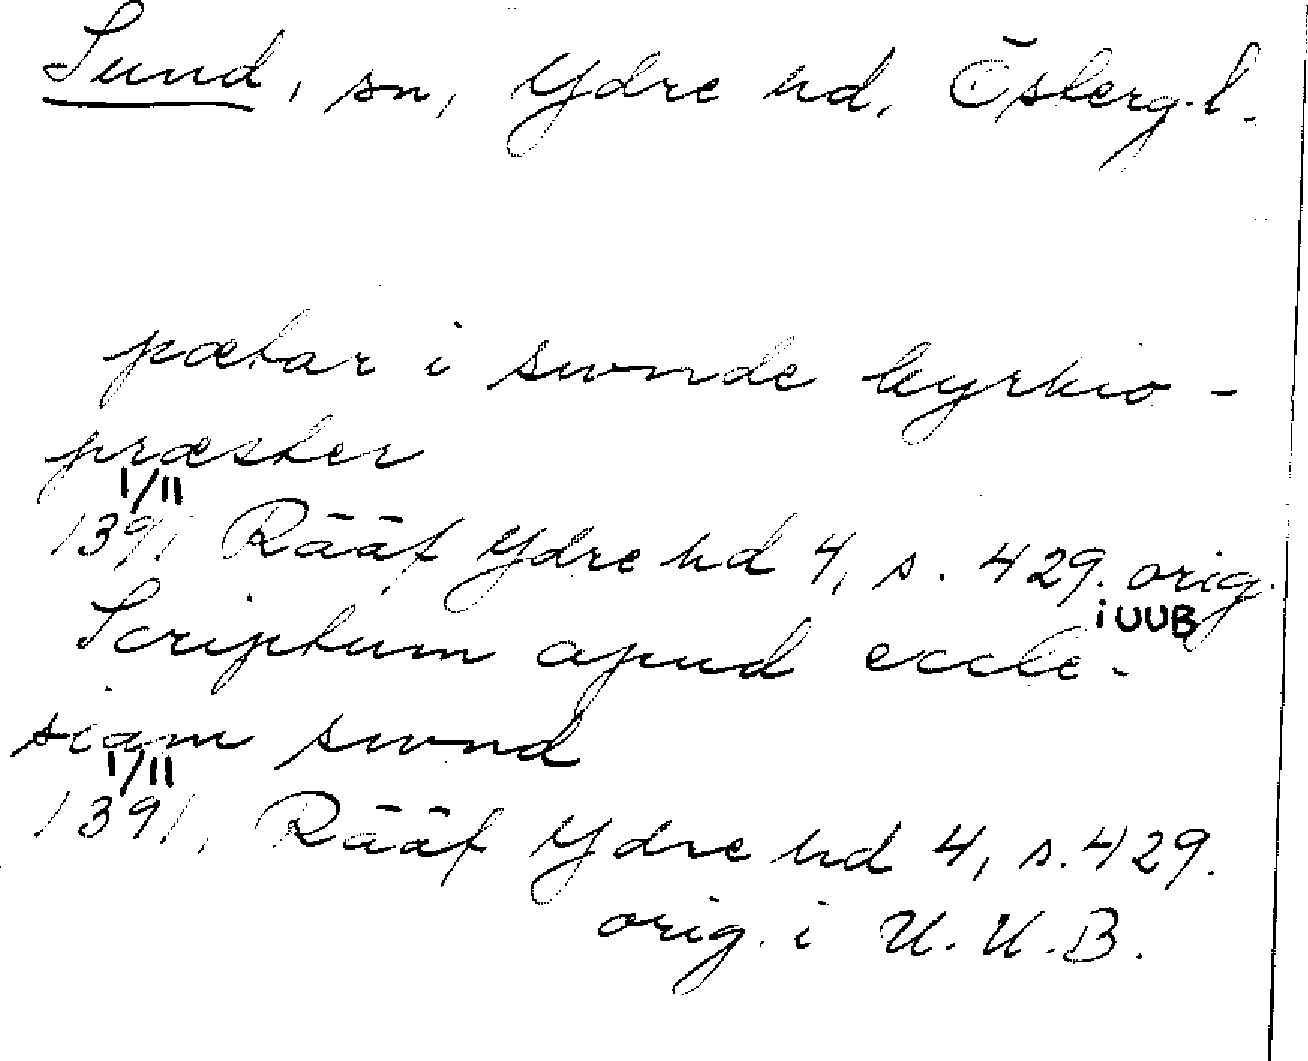 Sund, sn, Ydre hd, Österg.l.
pætar i swnde kyrkio-
præster
1/11
1391, Rääf Ydre hd 4, s. 429. orig.
i UUB
Scriptum apud eccle-
siam swnd
1/11
1391, Rääf Ydre hd 4, s. 429.
orig. i U.U.B.